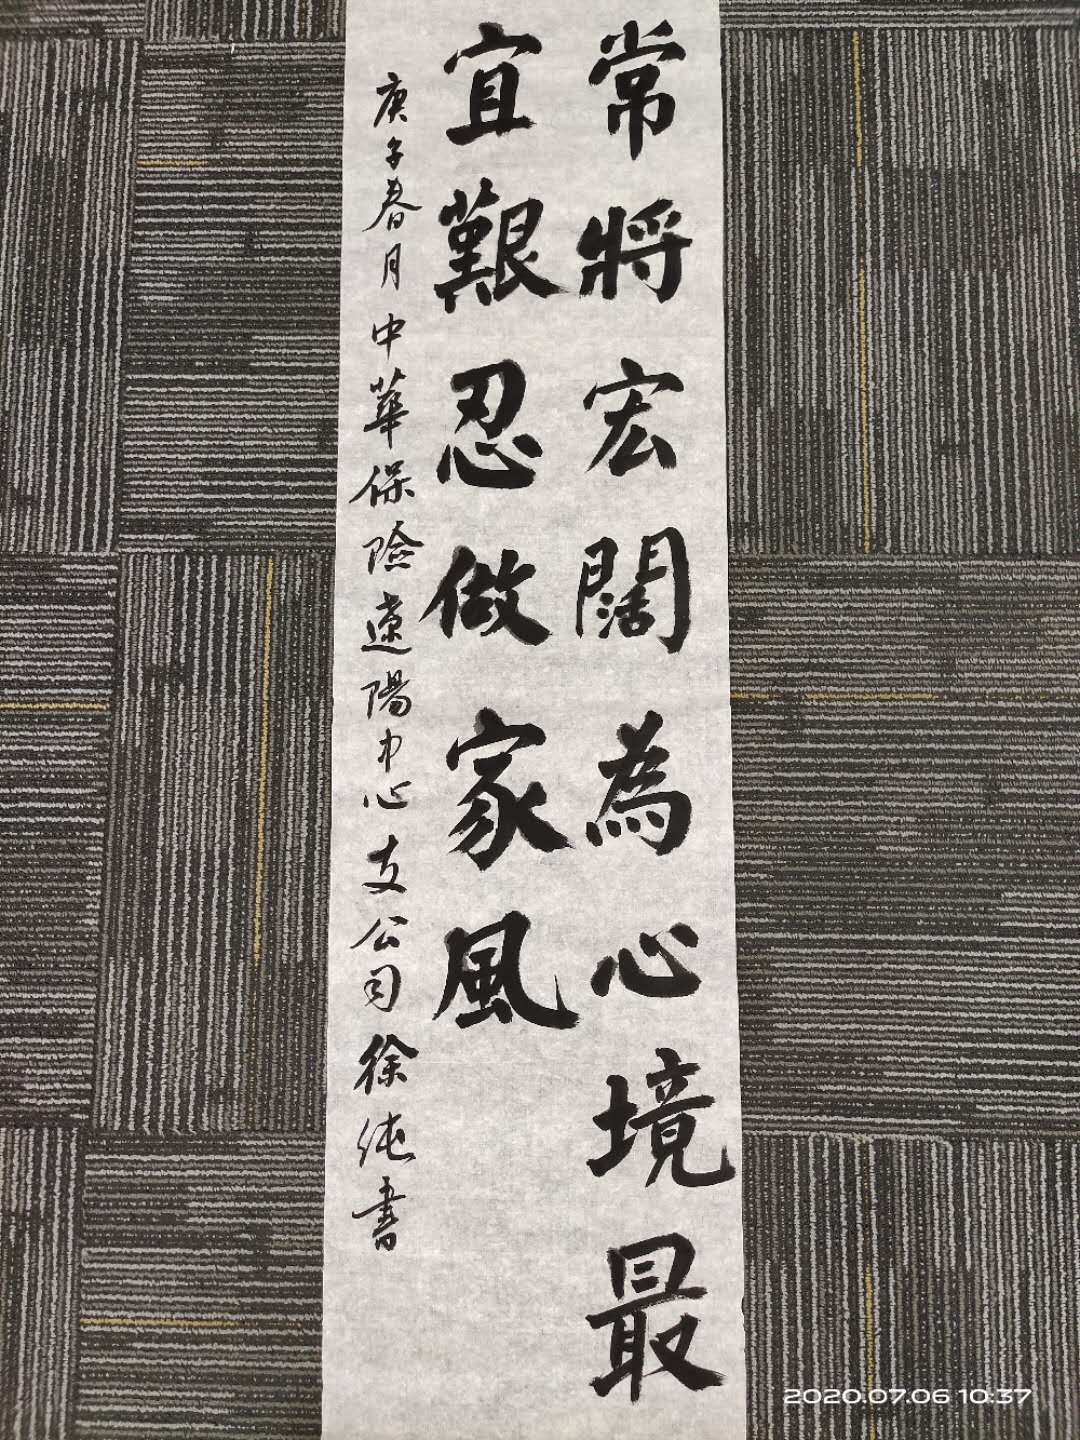 常將宏闊為心境最
宜艱忍做家風
庚子春月中華保險遼陽中心支公司徐純書
2020.07.06 10:37